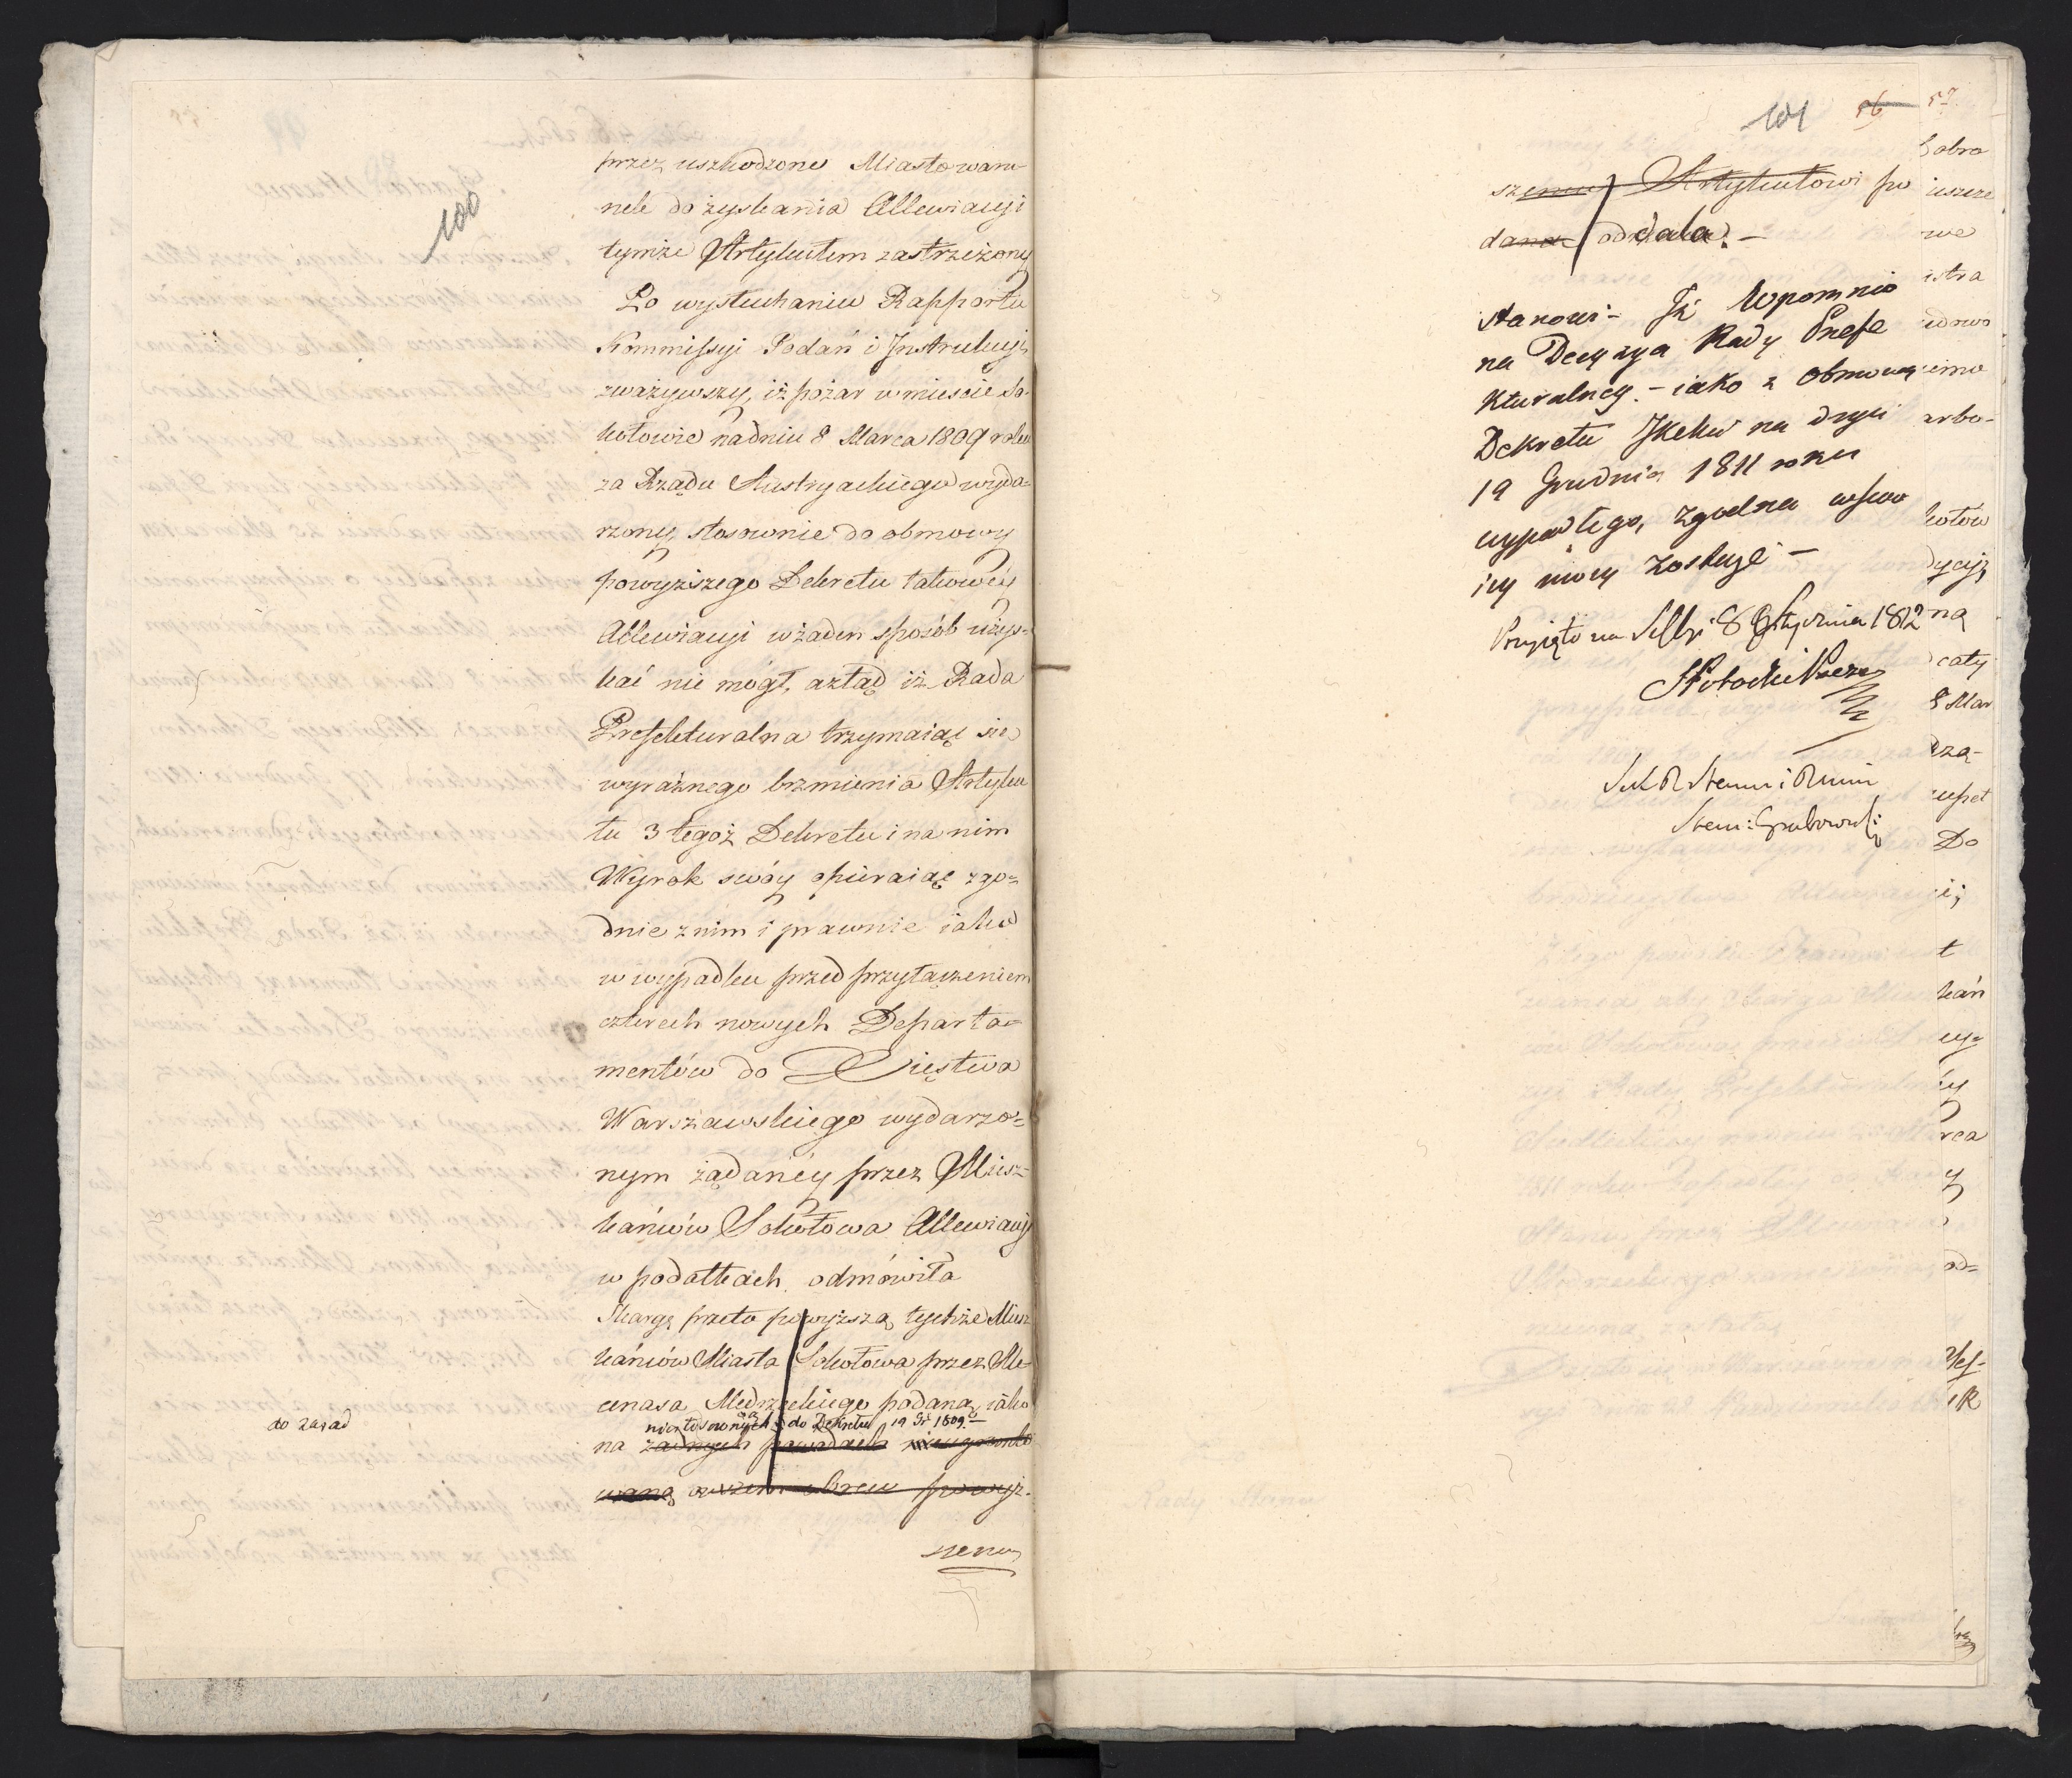 100
przez uszkodzone Miasto waru
nek do zyskania Allewiacyi
tymże Artykułem zastrzeżony
Po wysłuchaniu Rapportu
Kommissyi Podań i Instrukcyi
zważywszy, iż pożar w mieście So-
kołowie na dniu 8 Marca 1809 roku
za Rządu Austryackiego wyda-
rzony, stosownie do obmowy
powyższego Dekretu takowéy
Allewiacyi w żaden sposób uzys-
kać nie mógł, a ztąd iż Rada
Prefekturalna trzymaiąc sie
wyraźnego brzmienia Artyku
łu 3 tegoż Dekretu i na nim
Wyrok swóy opieraiąc zgo-
dnie z nim i prawnie iako
w wypadku przed przyłączeniem
czterech nowych Departa-
mentów do Xięstwa
Warszawskiego wydarzo-
nym żądanéy przez Miesz-
kańców Sokołowa Allewiacyi
w podatkach odmówiła
Skargę przeto powyższą tychże Miesz
kańców Miasta Sokołowa przez Me-
cenasa Medrzeckiego podaną, iako
do zasad
niestosownych do Dekretu 19 Gr 1809.
na żadnych powodach nieugrunto
waną owszem wbrew powyż-
szemu
101 56
szemu Artykułowi po
daną oddala. –
Stanowi – Iż Wpomnio
na Decyzya Rady Prefe
kturalney – iako z obmową
Dekretu JKMci na dniu
19 Grudnia 1811 roku
wypadłego, zgodna w swo
iey mocy zostaje –
Przyięto na Sessyi 8 Stycznia 1812
SPotocki Prezes
Sek R Stanu i Minis
Stan: Grabowski
57
dobro
ieszcze
we
istra
arbo-
kołow
dycyi,
ną
cały
8 Mar
dzą-
zupeł
Do
i;
t
kań
cy-
rca
y
od-